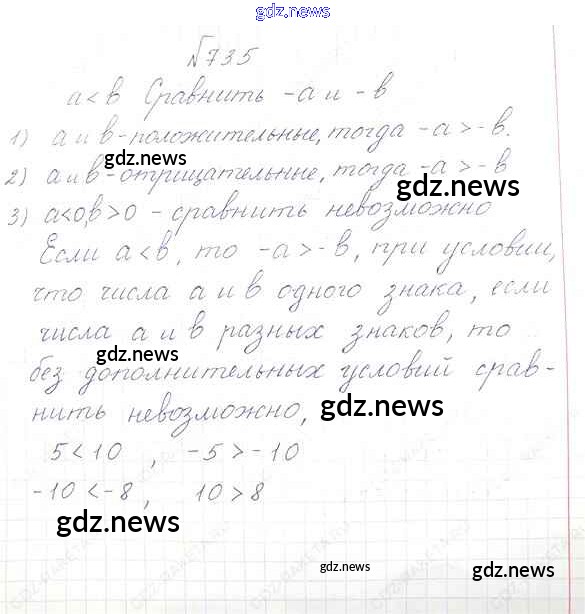 gdz.news
№735
a < b Сравнить -a и -b
1) a и b - положительные, тогда -a > -b.
gdz.news
2) a и b - отрицательные, тогда -a > -b
gdz.news
3) a<0, b>0 - сравнить невозможно
Если a < b, то -a > -b, при условии,
что числа a и b одного знака, если
числа a и b разных знаков, то
gdz.news
без дополнительных условий срав-
нить невозможно,
gdz.news
5 < 10 , -5 > -10
-10 < -8 , 10 > 8
gdz.news
gdz.news
gdz.news